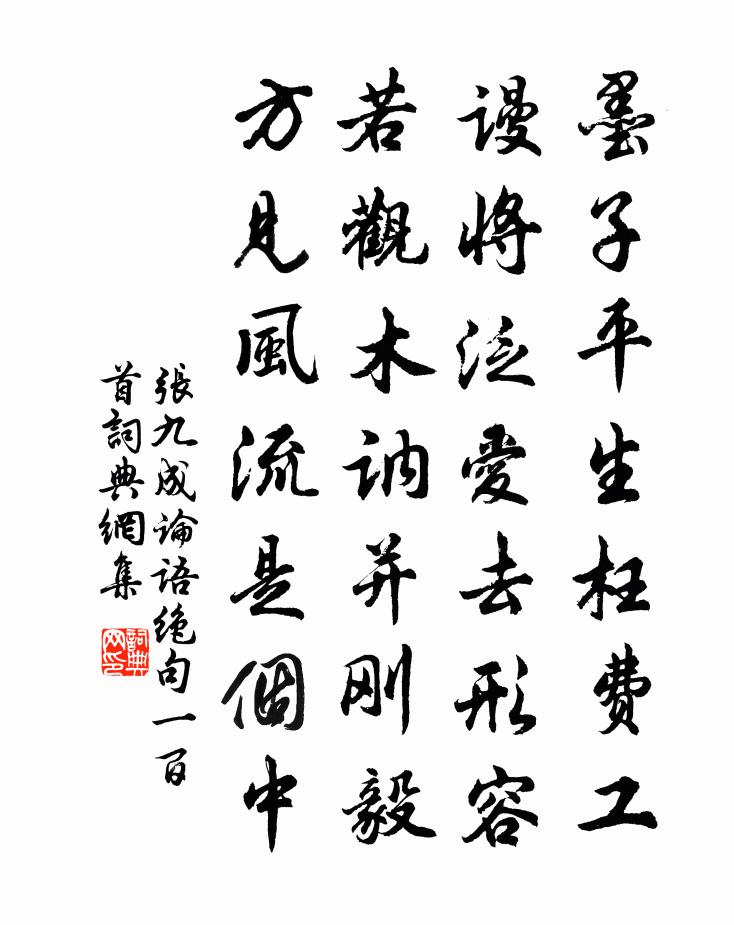 墨子平生枉費工
謾將泛愛去形容
若觀木訥并剛毅
方見風流是個中
張九成論語絶句一百
首詞典網集
詞典网印